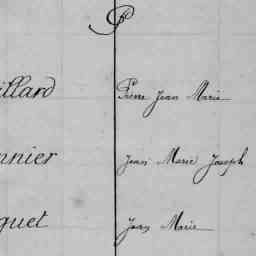 P
illard Pierre Jean Marie
nnier Jean Marie Joseph
guet Jean Marie